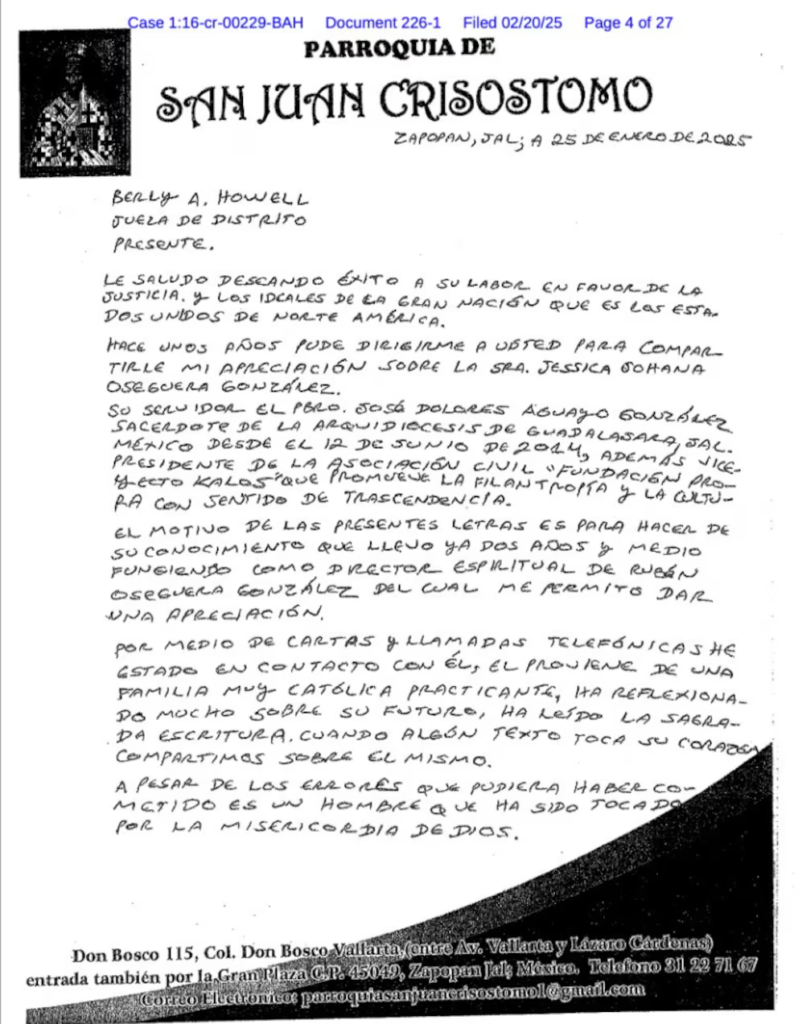 Case 1:16-cr-00229-BAH Document 226-1 Filed 02/20/25 Page 4 of 27
PARROQUIA DE
SAN JUAN CRISOSTOMO
ZAPOPAN, JAL; A 25 DE ENERO DE 2025
BERLY A. HOWELL
JUEZA DE DISTRITO
PRESENTE.
LE SALUDO DESEANDO ÉXITO A SU LABOR EN FAVOR DE LA
JUSTICIA. Y LOS IDEALES DE LA GRAN NACIÓN QUE ES LOS ESTA-
DOS UNIDOS DE NORTE AMÉRICA.
HACE UNOS AÑOS PUDE DIRIGIRME A USTED PARA COMPAR-
TIRLE MI APRECIACIÓN SOBRE LA SRA. JESSICA JOHANA
OSEGUERA GONZÁLEZ.
SU SERVIDOR EL PBRO. JOSÉ DOLORES AGUAYO GONZÁLEZ
SACERDOTE DE LA ARQUIDIOCESIS DE GUADALAJARA, JAL.
MÉXICO DESDE EL 12 DE JUNIO DE 2014, ADEMÁS VICE-
PRESIDENTE DE LA ASOCIACIÓN CIVIL "FUNDACIÓN PRO-
YECTO KALOS" QUE PROMUEVE LA FILANTROPÍA Y LA CULTU-
RA CON SENTIDO DE TRASCENDENCIA.
EL MOTIVO DE LAS PRESENTES LETRAS ES PARA HACER DE
SU CONOCIMIENTO QUE LLEVO YA DOS AÑOS Y MEDIO
FUNGIENDO COMO DIRECTOR ESPIRITUAL DE RUBÉN
OSEGUERA GONZÁLEZ DEL CUAL ME PERMITO DAR
UNA APRECIACIÓN.
POR MEDIO DE CARTAS Y LLAMADAS TELEFÓNICAS HE
ESTADO EN CONTACTO CON ÉL, EL PROVIENE DE UNA
FAMILIA MUY CATÓLICA PRACTICANTE, HA REFLEXIONA-
DO MUCHO SOBRE SU FUTURO, HA LEÍDO LA SAGRA-
DA ESCRITURA. CUANDO ALGÚN TEXTO TOCA SU CORAZÓN
COMPARTIMOS SOBRE EL MISMO.
A PESAR DE LOS ERRORES QUE PUDIERA HABER CO-
METIDO ES UN HOMBRE QUE HA SIDO TOCADO
POR LA MISERICORDIA DE DIOS.
Don Bosco 115, Col. Don Bosco Vallarta,(entre Av. Vallarta y Lázaro Cárdenas)
entrada también por la Gran Plaza C.P. 45049, Zapopan Jal; México. Telefono 31 22 71 67
Correo Electronico: parroquiasanjuancrisostomo1@gmail.com